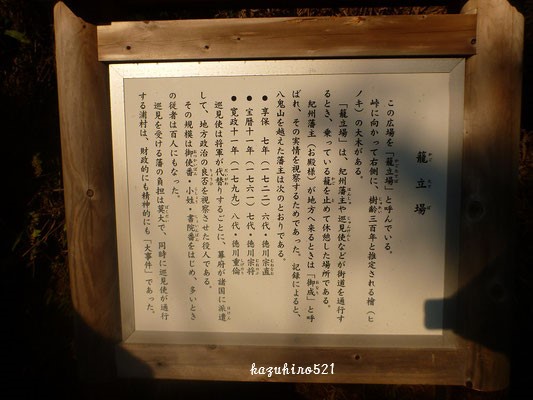 籠立場
この広場を「籠立場」と呼んでいる。
峠に向かって右側に、樹齢三百年と推定される檜（ヒ
ノキ）の大木がある。
「籠立場」は、紀州藩主や巡見使などが街道を通行す
るとき、乗っている籠を止めて休憩した場所である。
紀州藩主（お殿様）が地方へ来るときは「御成」と呼
ばれ、その実情を視察するためであった。記録によると、
八鬼山を越えた藩主は次のとおりである。
●享保　七年（一七二二）六代・徳川宗直
●宝暦十一年（一七六一）七代・徳川宗将
●寛政十一年（一七九九）八代・徳川重倫
巡見使は将軍が代替りするごとに、幕府が諸国に派遣
して、地方政治の良否を視察させた役人である。
その規模は御使番・小姓・書院番をはじめ、多いとき
の従者は百人にもなった。
巡見を受ける藩の負担は莫大で、同時に巡見使が通行
する浦村は、財政的にも精神的にも「大事件」であった。
kazuhiro521